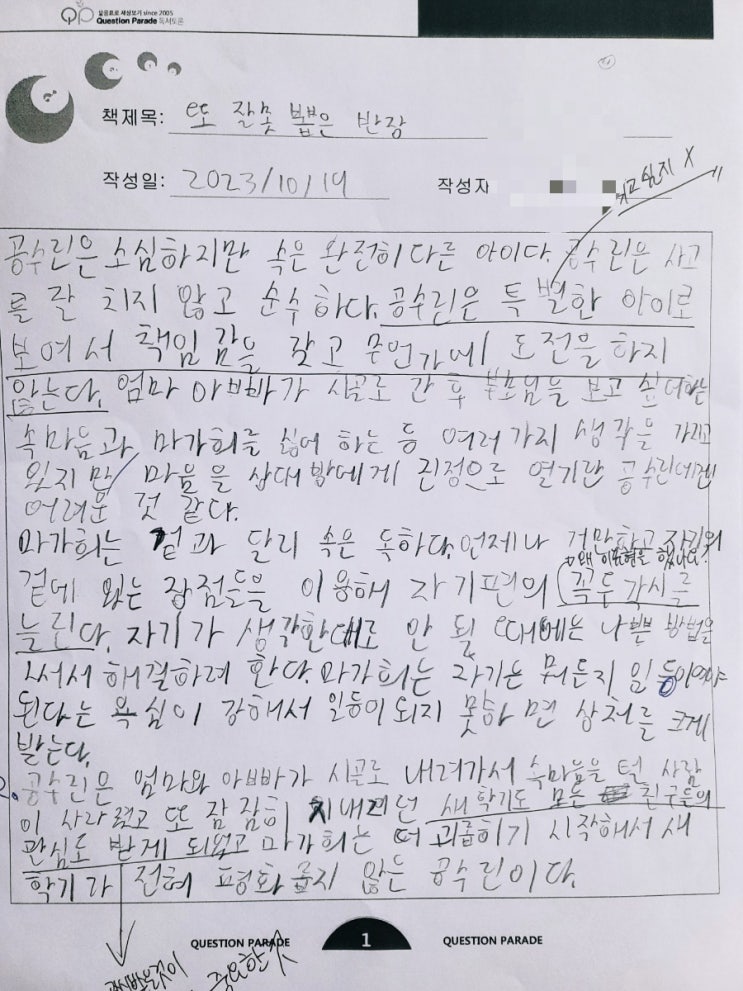 질문표로 세상보기 since 2005
QP Question Parade 독서토론
책제목: 또 잘못 뽑은 반장
작성일: 2023/10/19 작성자
싶지 X
공수린은 소심하지만 속은 완전히 다른 아이다. 공수린은 사고
를 잘 치지 않고 순수하다. 공수린은 특별한 아이로
보여서 책임감을 갖고 무언가에 도전을 하지
않는다. 엄마 아빠가 시골로 간 후 부모님을 보고 싶어하는
속마음과 마가희를 싫어 하는 등 여러가지 생각을 가지고
있지만 마음을 상대방에게 진정으로 열기란 공수린에겐
어려운 것 같다.
마가희는 겉과 달리 속은 독하다. 언제나 거만하고 자기의
왜 이 표현을 했나요?
겉에 있는 장점들을 이용해 자기편의 꼭두각시를
늘린다. 자기가 생각한대로 안 될 때에는 나쁜 방법을
써서 해결하려 한다. 마가희는 자기는 뭐든지 일등이여야
된다는 욕심이 강해서 일등이 되지 못하면 상처를 크게
받는다.
공수린은 엄마와 아빠가 시골로 내려가서 속마음을 털 사람
이 사라졌고 또 잠잠히 지내려던 새 학기도 모든 친구들의
관심도 받게 되었고 마가희는 더 괴롭히기 시작해서 새
학기가 전혀 평화롭지 않은 공수린이다.
QUESTION PARADE 1 QUESTION PARADE
중요한